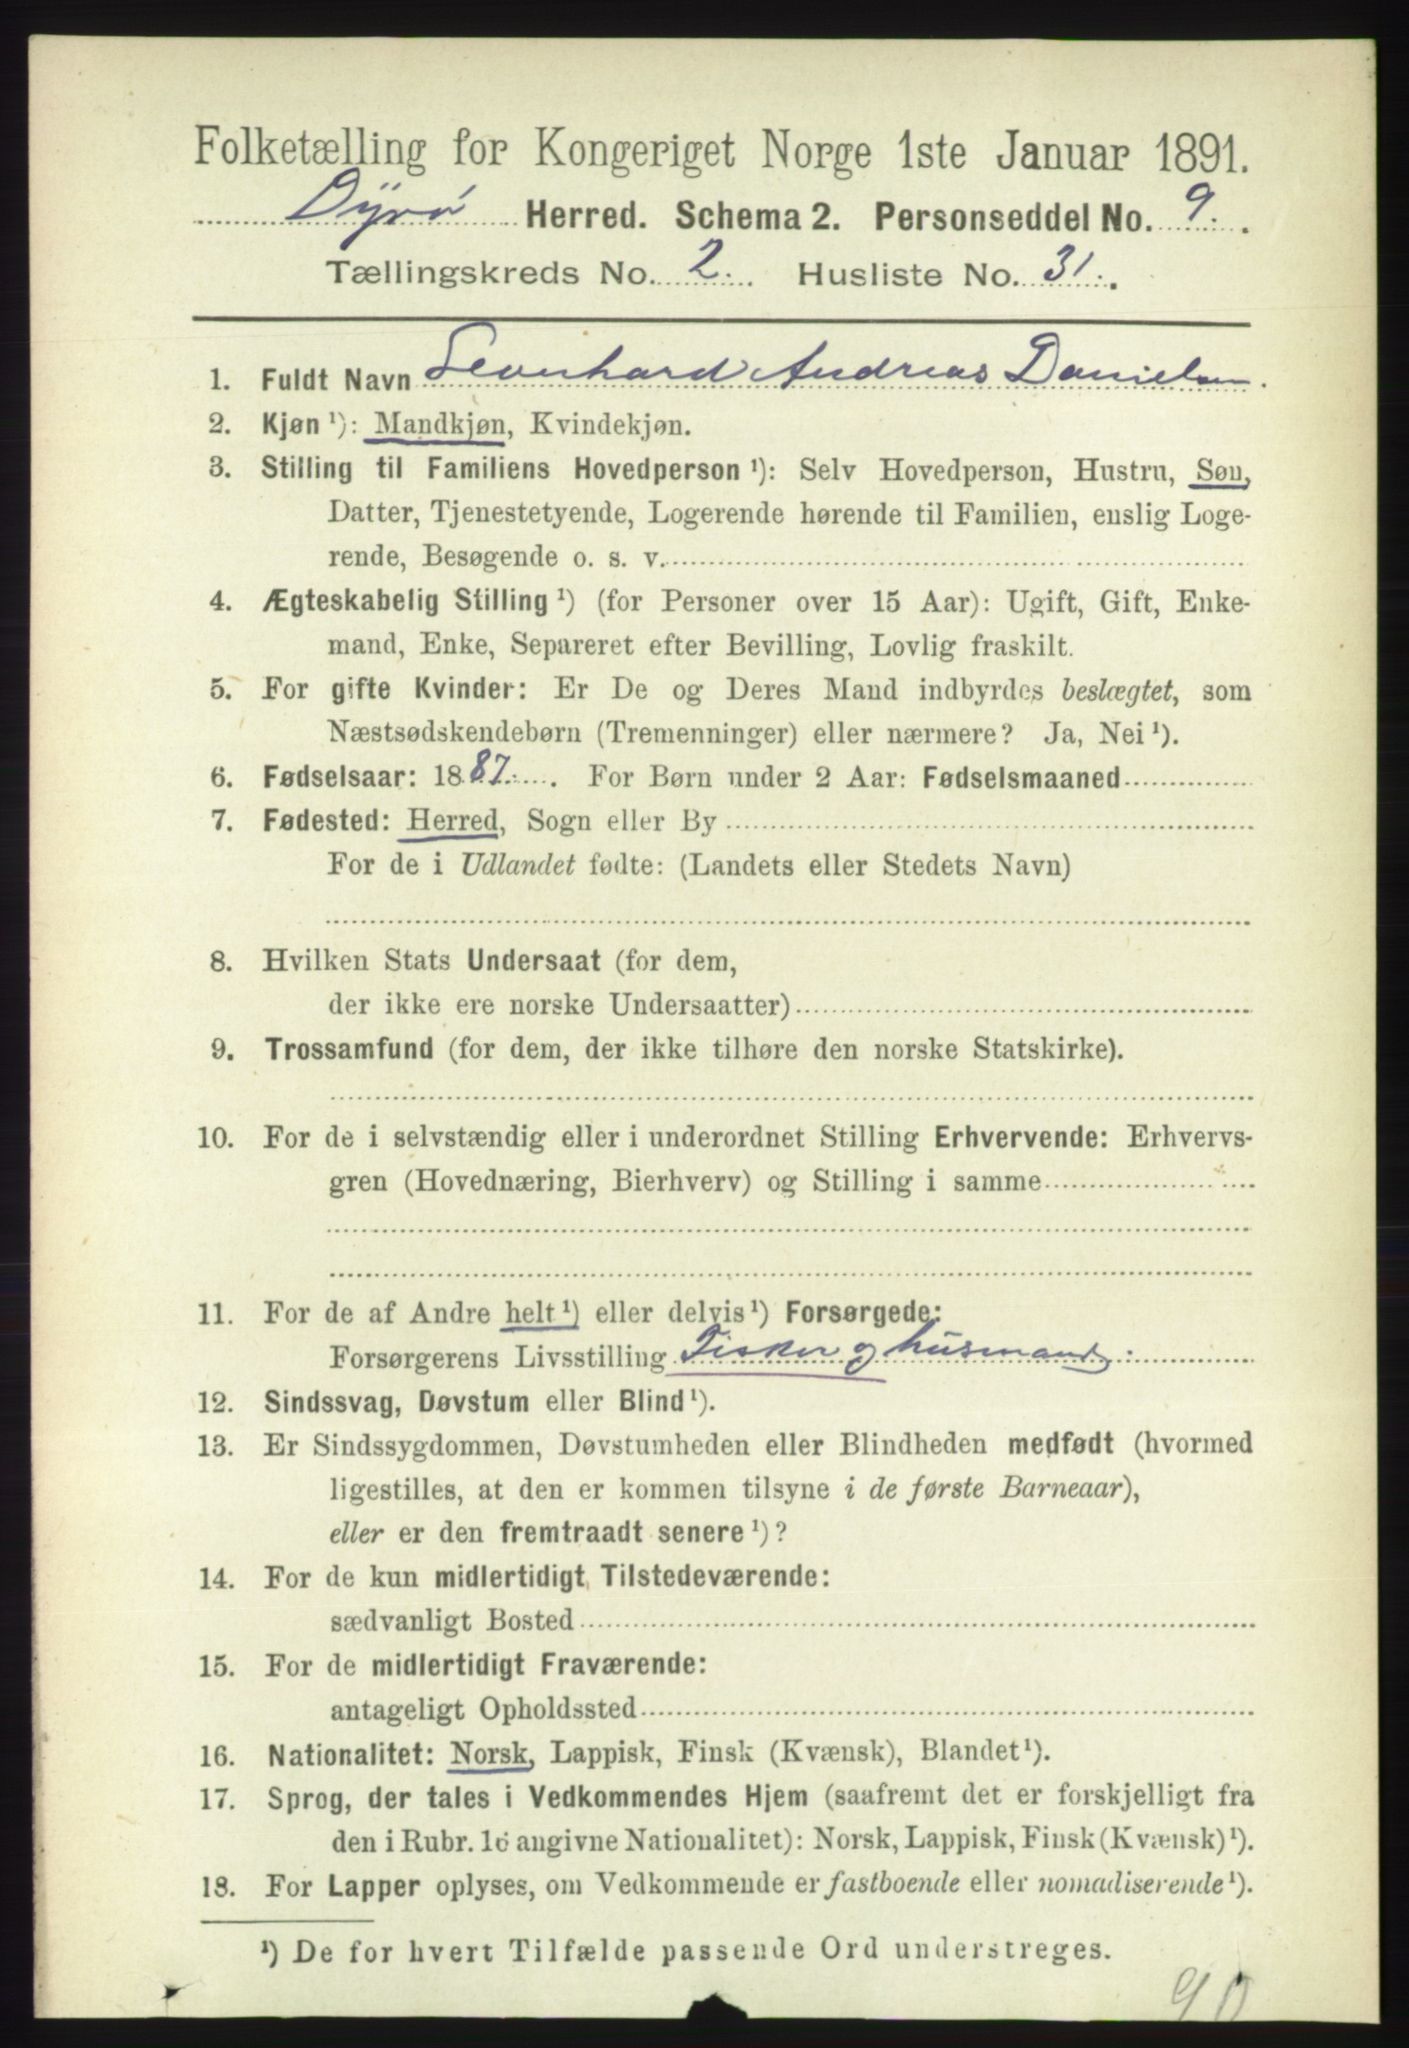 Folketælling for Kongeriget Norge 1ste Januar 1891.
Dÿrø Herred. Schema 2. Personseddel No. 9.
Tællingskreds No. 2. Husliste No. 31.
1. Fuldt Navn Leonhard Andreas Danielsen.
2. Kjøn ¹): Mandkjøn, Kvindekjøn.
3. Stilling til Familiens Hovedperson ¹): Selv Hovedperson, Hustru, Søn,
Datter, Tjenestetyende, Logerende hørende til Familien, enslig Loge-
rende, Besøgende o. s. v.
4. Ægteskabelig Stilling ¹) (for Personer over 15 Aar): Ugift, Gift, Enke-
mand, Enke, Separeret efter Bevilling, Lovlig fraskilt.
5. For gifte Kvinder: Er De og Deres Mand indbyrdes beslægtet, som
Næstsødskendebørn (Tremenninger) eller nærmere? Ja, Nei ¹).
6. Fødselsaar: 1887. For Børn under 2 Aar: Fødselsmaaned
7. Fødested: Herred, Sogn eller By
For de i Udlandet fødte: (Landets eller Stedets Navn)
8. Hvilken Stats Undersaat (for dem,
der ikke ere norske Undersaatter)
9. Trossamfund (for dem, der ikke tilhøre den norske Statskirke).
10. For de i selvstændig eller i underordnet Stilling Erhvervende: Erhvervs-
gren (Hovednæring, Bierhverv) og Stilling i samme
11. For de af Andre helt ¹) eller delvis ¹) Forsørgede:
Forsørgerens Livsstilling Fisker og husmand.
12. Sindssvag, Døvstum eller Blind ¹).
13. Er Sindssygdommen, Døvstumheden eller Blindheden medfødt (hvormed
ligestilles, at den er kommen tilsyne i de første Barneaar),
eller er den fremtraadt senere ¹)?
14. For de kun midlertidigt Tilstedeværende:
sædvanligt Bosted
15. For de midlertidigt Fraværende:
antageligt Opholdssted
16. Nationalitet: Norsk, Lappisk, Finsk (Kvænsk), Blandet ¹).
17. Sprog, der tales i Vedkommendes Hjem (saafremt det er forskjelligt fra
den i Rubr. 16 angivne Nationalitet): Norsk, Lappisk, Finsk (Kvænsk) ¹).
18. For Lapper oplyses, om Vedkommende er fastboende eller nomadiserende ¹).
¹) De for hvert Tilfælde passende Ord understreges.
90